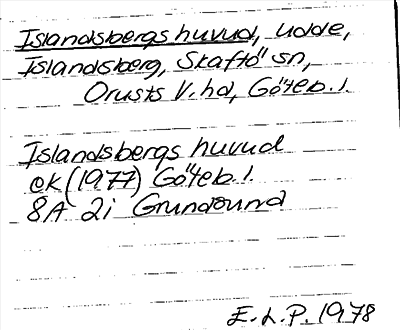 Islandsbergs huvud, udde,
Islandsberg, Skaftö sn,
Orusts V. hd, Göteb. l.
Islandsbergs huvud
ek (1977) Göteb. l.
8A 2i Grundsund
E. L. P. 1978